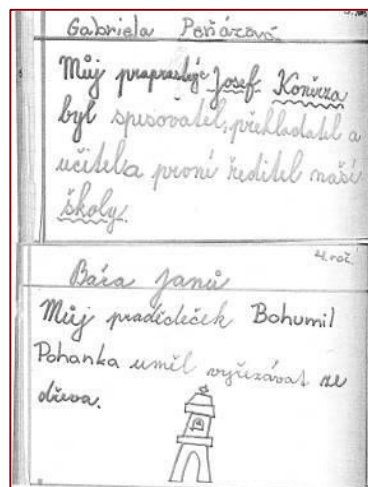 Gabriela Peňázová
Můj praprastrýc Josef Konůrza
byl spisovatel, překladatel a
učitel a první ředitel naší
školy.
4. roč.
Bára Janů
Můj pradědeček Bohumil
Pohanka uměl vyřezávat ze
dřeva.